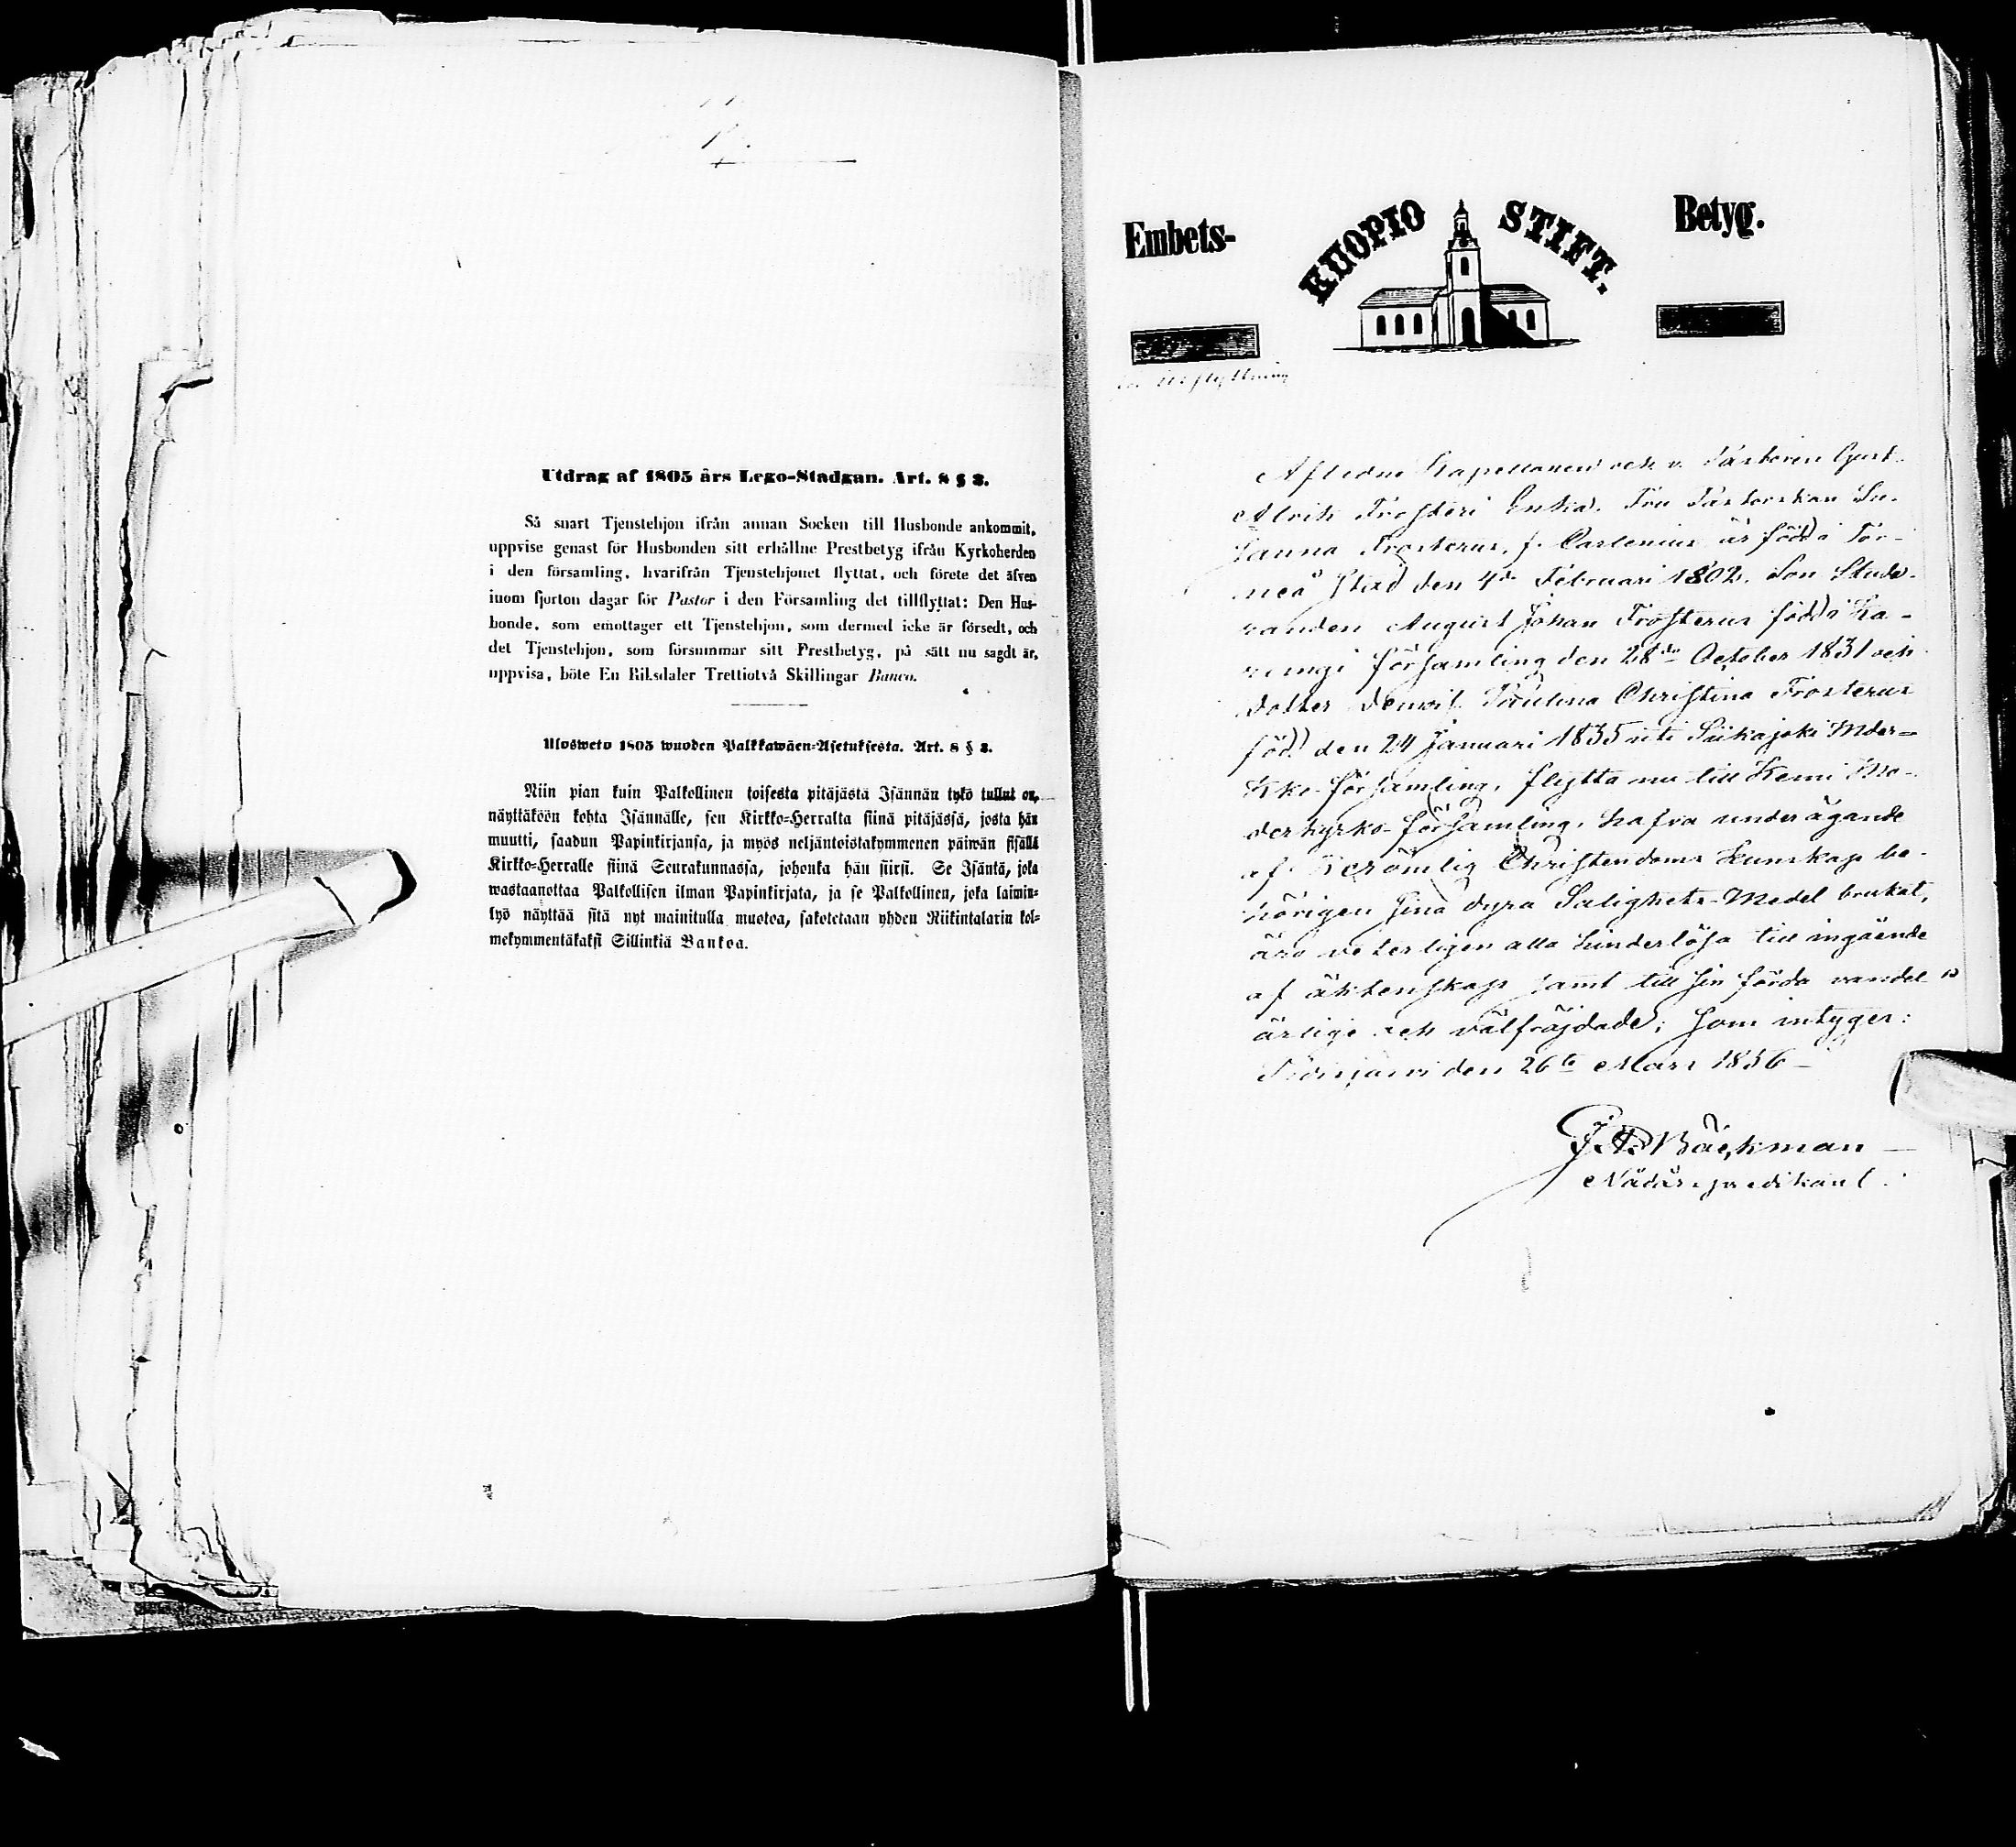 Utdrag af 1805 års Lego-Stadgan. Art. 8 § 3.
Så snart Tjenstehjon ifrån annan Socken till Husbonde ankommit,
uppvise genast för Husbonden sitt erhållne Prestbetyg ifrån Kyrkoherden
i den församling, hvarifrån Tjenstehjonet flyttat, och förete det äfven
inom fjorton dagar för Pastor i den Församling det tillflyttat: Den Hus-
bonde, som emottager ett Tjenstehjon, som dermed icke är försedt, och
det Tjenstehjon, som försummar sitt Prestbetyg, på sätt nu sagdt är,
uppvisa, böte En Riksdaler Trettiotvå Skillingar Banco.
Ulosweto 1805 wuoden Palkkawäen-Asetuksesta. Art. 8 § 3.
Niin pian kuin Palkollinen toisesta pitäjästä Isännän tykö tullut on,
näyttäköön kohta Isännälle, sen Kirkko-Herralta siinä pitäjässä, josta hän
muutti, saadun Papinkirjansa, ja myös neljäntoistakymmenen päiwän sisällä
Kirkko-Herralle siinä Seurakunnassa, johonka hän siirsi. Se Isäntä, joka
wastaanottaa Palkollisen ilman Papinkirjata, ja se Palkollinen, joka laimin-
lyö näyttää sitä nyt mainitulla muotoa, sakotetaan yhden Riikintalarin kol-
mekymmentäkaksi Sillinkiä Bankoa.
Embets- KUOPIO STIFT. Betyg.
utflyttning
Aflidne Kapellanen och v. Pastoren Gust.
Alrik Frosteri Enka, Fru Pastorskan Su-
sanna Frosterus, f. Carlenius är född i Tor-
neå stad den 4de Februari 1802, Son Stude-
randen August Johan Frosterus född i Ha-
den 28de October 1831 och
dotter Paulina Christina Frosterus
född den 24 Januari 1835 uti Siikajoki Moder-
Kko-församling, flytta nu till Kemi Mo-
derkyrko-församling, hafva under ägande
af berömlig Christendoms kunskap be-
hörigen sina dyra Salighets-Medel brukat,
äro veterligen alla hinderlösa till ingående
af äktenskap samt till sin förda vandel
ärlige och välfräjdade; som intygar:
den 26te Mars 1856
Bäckman
Nådårs predikant.